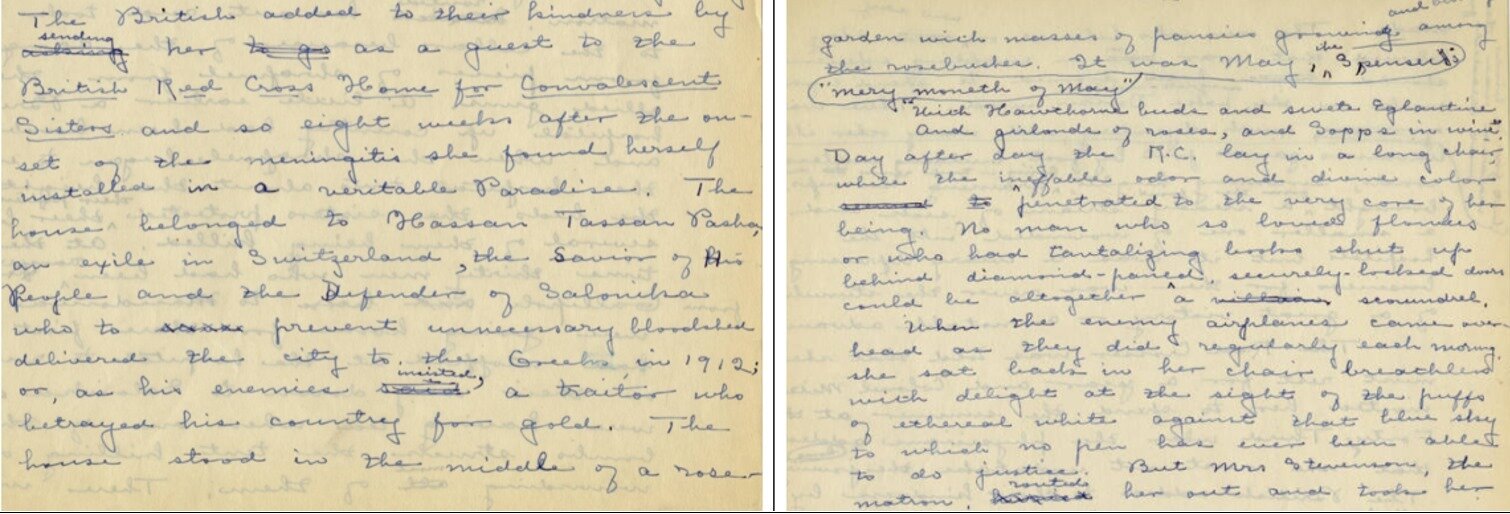 The British added to their kindness by
sending
asking her to go as a guest to the
British Red Cross Home for Convalescent
Sisters and so eight weeks after the on-
set of the meningitis she found herself
installed in a veritable Paradise. The
house belonged to Hassan Tassan Pasha,
an exile in Switzerland, the Savior of His
People and the Defender of Salonika
who to prevent unnecessary bloodshed
delivered the city to the Greeks in 1912;
insisted,
or, as his enemies said a traitor who
betrayed his country for gold. The
house stood in the middle of a rose-
and
garden with masses of pansies growing among
the rosebushes. It was May, the Spenser's
"mery moneth of May"
"With Hawthorne buds and swete Eglantine
And girlonds of roses, and Sopps in wine".
Day after day the R.C. lay in a long chair
while the ineffable odor and divine color
seemed to penetrated to the very core of her
being. No man who so loved flowers
or who had tantalizing books shut up
behind diamond-paned, securely-locked doors
could be altogether a villain scoundrel.
When the enemy airplanes came over
head as they did regularly each morning,
she sat back in her chair breathless
with delight at the sight of the puffs
of ethereal white against that blue sky
to which no pen has ever been able
to do justice. But Mrs Stevenson, the
routed
matron, her out and took her